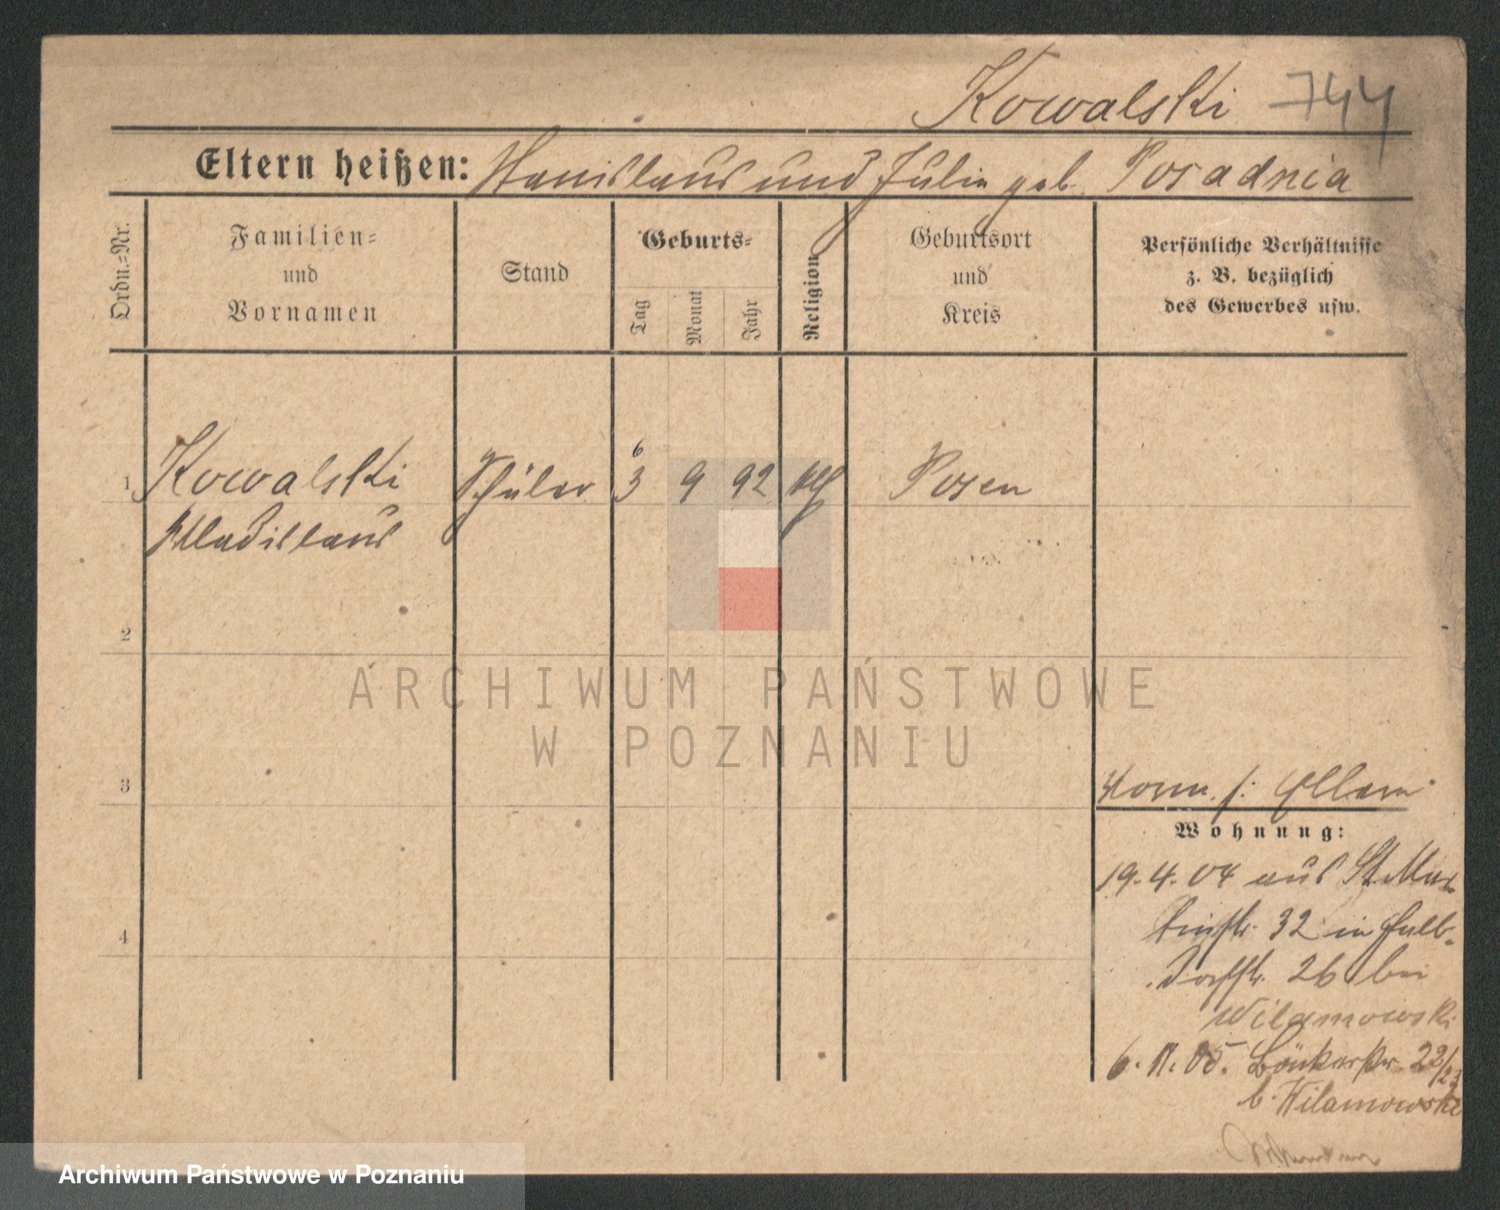 Kowalski 744
Eltern heißen: Stanislaus und Julia geb. Posadnia
Ordn.-Nr.
Familien-
und
Vornamen
Stand
Geburts-
Tag
Monat
Jahr
Religion
Geburtsort
und
Kreis
Persönliche Verhältnisse
z. B. bezüglich
des Gewerbes usw.
6
1 Kowalski Schüler 3 9 92 kth Posen
Wladislaus
2
ARCHIWUM PAŃSTWOWE
W POZNANIU
3
Vorm. s: Eltern
Wohnung:
19.4.04 aus St. Mar-
tinstr. 32 in Halb-
dorfstr. 26 bei
Wilamowski
4
6. 11. 05. Bäckerstr. 22/23
b. Wilamowski
Archiwum Państwowe w Poznaniu